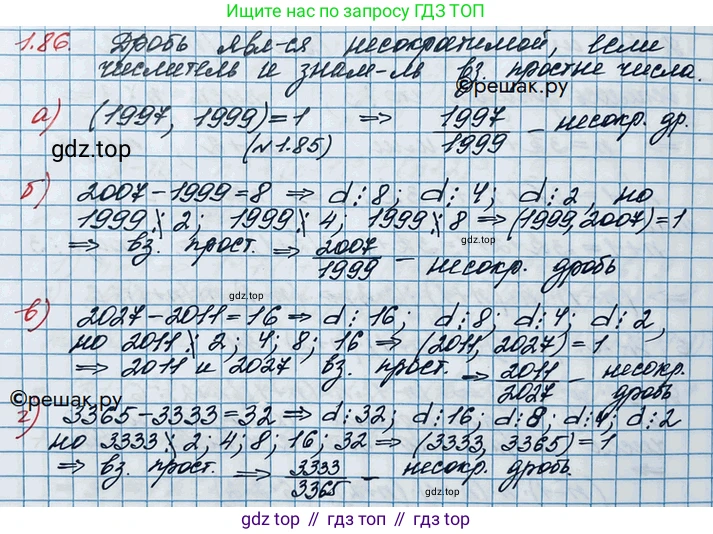 Ищите нас по запросу ГДЗ ТОП
1.86. Дробь явл-ся несократимой, если
числитель и знам-ль вз. простые числа.
©reшак.ру
а) (1997, 1999) = 1 ⇒ 1997/1999 – несокр. др.
(№1.85)
гдз top
б) 2007 – 1999 = 8 ⇒ d⋮8; d⋮4; d⋮2, но
1999⋮̸2; 1999⋮̸4; 1999⋮̸8 ⇒ (1999, 2007) = 1
гдз top
⇒ вз. прост. ⇒ 2007/1999 – несокр. дробь
гдз top
в) 2027 – 2011 = 16 ⇒ d⋮16; d⋮8; d⋮4; d⋮2,
но 2011⋮̸2; 4; 8; 16 ⇒ (2011, 2027) = 1
⇒ 2011 и 2027 вз. прост. ⇒ 2011/2027 – несокр. дробь
©reшак.ру
г) 3365 – 3333 = 32 ⇒ d⋮32; d⋮16; d⋮8; d⋮4; d⋮2
но 3333⋮̸2; 4; 8; 16; 32 ⇒ (3333, 3365) = 1
⇒ вз. прост. ⇒ 3333/3365 – несокр. дробь.
гдз top
gdz top // гдз топ // гдз top